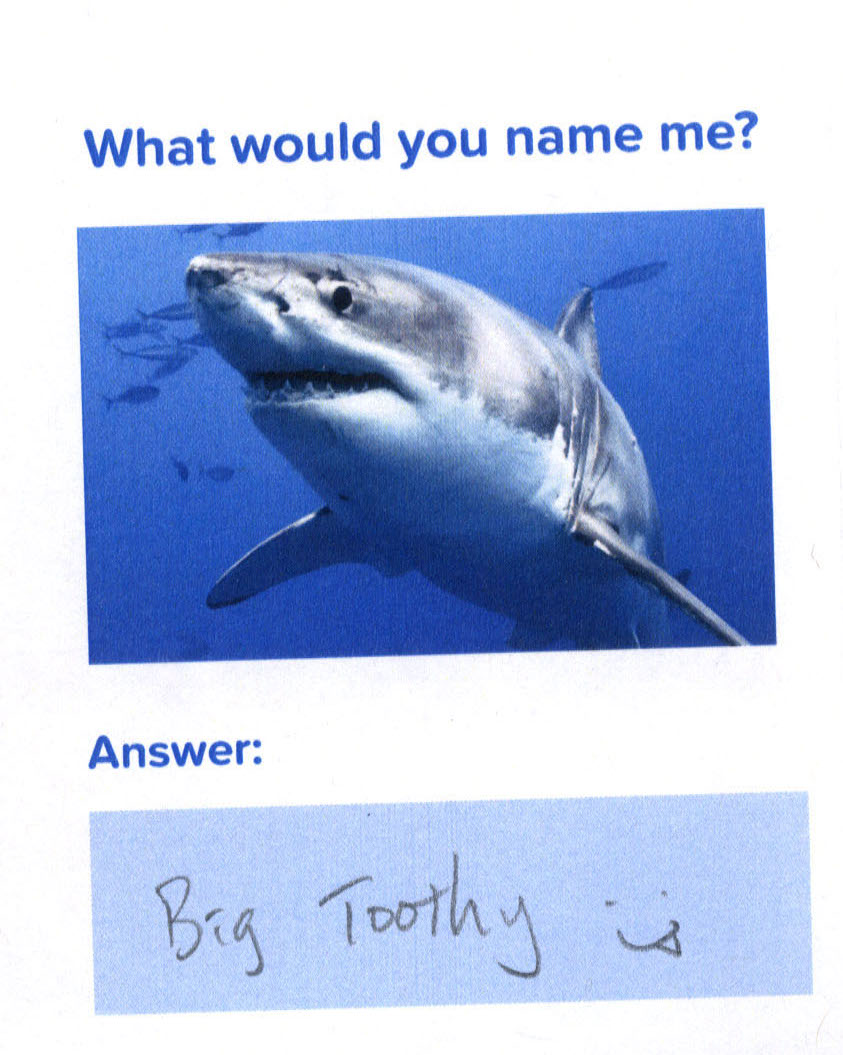 What would you name me?
Answer:
Big Toothy